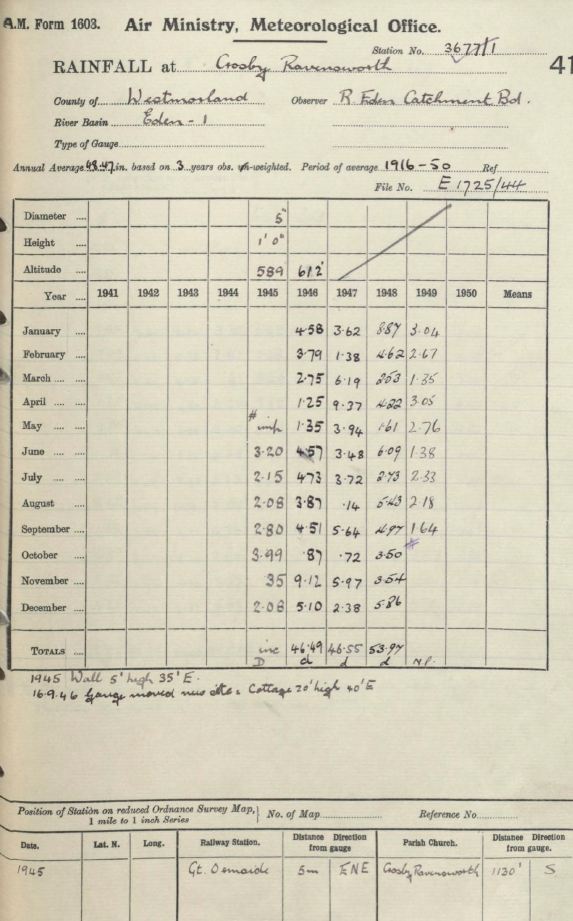 A.M. Form 1603. Air Ministry, Meteorological Office.
Station No. 3677/1
41
RAINFALL at Crosby Ravensworth
County of Westmorland Observer R. Eden Catchment Bd.
River Basin Eden - 1
Type of Gauge
Annual Average 48.47 in. based on 3 years obs. un-weighted. Period of average 1916-50 Ref
File No. E 1725/44
Diameter .... 5"
Height .... 1' 0"
Altitude .... 589 612'
Year .... 1941 1942 1943 1944 1945 1946 1947 1948 1949 1950 Means
January .... 4.58 3.62 8.87 3.04
February .... 3.79 1.38 4.62 2.67
March .... .... 2.75 6.19 2.53 1.35
April .... .... 1.25 9.37 4.22 3.05
May .... .... # 1.35 3.94 1.61 2.76
June .... .... 3.20 4.57 3.48 6.09 1.38
July .... .... 2.15 4.73 3.72 2.73 2.33
August .... 2.08 3.87 .14 5.43 2.18
September .... 2.80 4.51 5.64 4.97 1.64
October .... 3.99 .87 .72 3.50 #
November .... 35 9.12 5.97 3.54
December .... 2.08 5.10 2.38 5.86
TOTALS .... inc 46.49 46.55 53.97
D d d d N.P.
1945 Wall 5' high 35' E.
16.9.46 Gauge moved new site: Cottage 20' high 40' E
Position of Station on reduced Ordnance Survey Map, } No. of Map Reference No
1 mile to 1 inch Series
Date. Lat. N. Long. Railway Station. Distance Direction from gauge Parish Church. Distance Direction from gauge.
1945 Gt. 5m ENE Crosby Ravensworth 1130' S